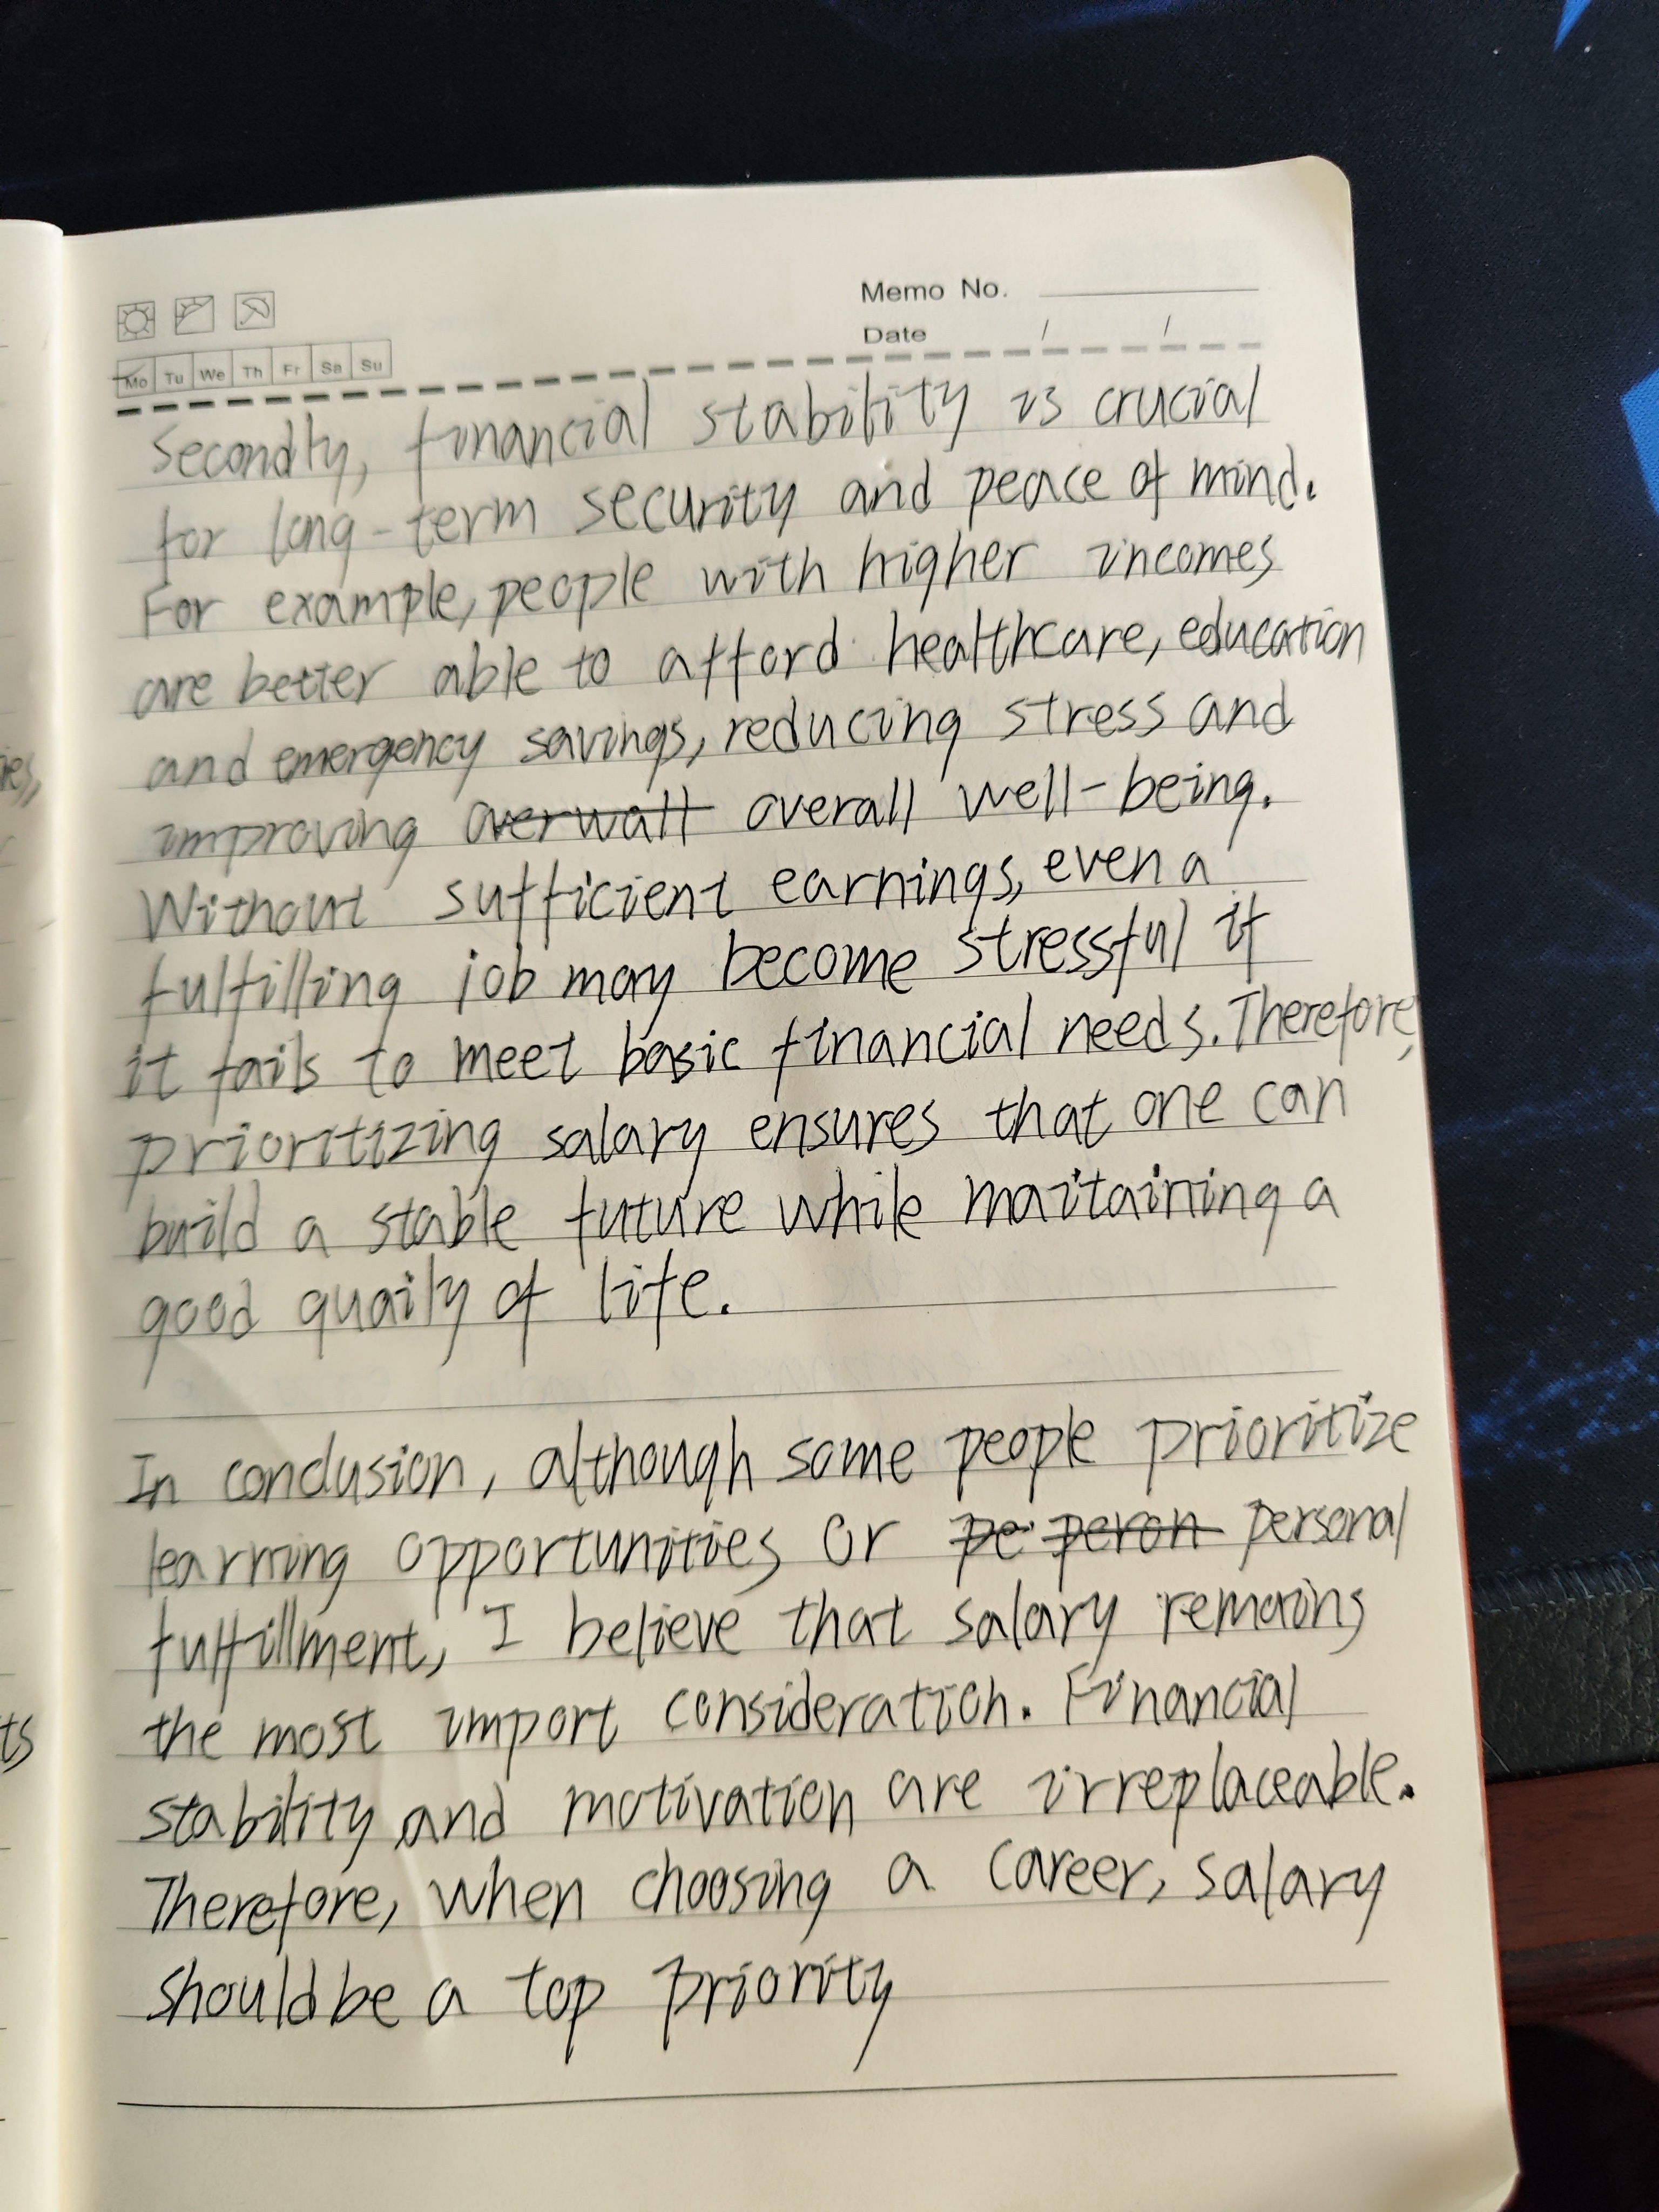 Memo No.
Date / /
Mo Tu We Th Fr Sa Su
Secondly, financial stability is crucial
for long-term security and peace of mind.
For example, people with higher incomes
are better able to afford healthcare, education
and emergency savings, reducing stress and
improving overwall overall well-being.
Without sufficient earnings, even a
fulfilling job may become stressful if
it fails to meet basic financial needs. Therefore,
prioritizing salary ensures that one can
build a stable future while maitaining a
good quaily of life.
In conclusion, although some people prioritize
learning opportunities or pe peron personal
fulfillment, I believe that salary remains
the most import consideration. Financial
stability and motivation are irreplaceable.
Therefore, when choosing a career, salary
should be a top priority
ies,
ts